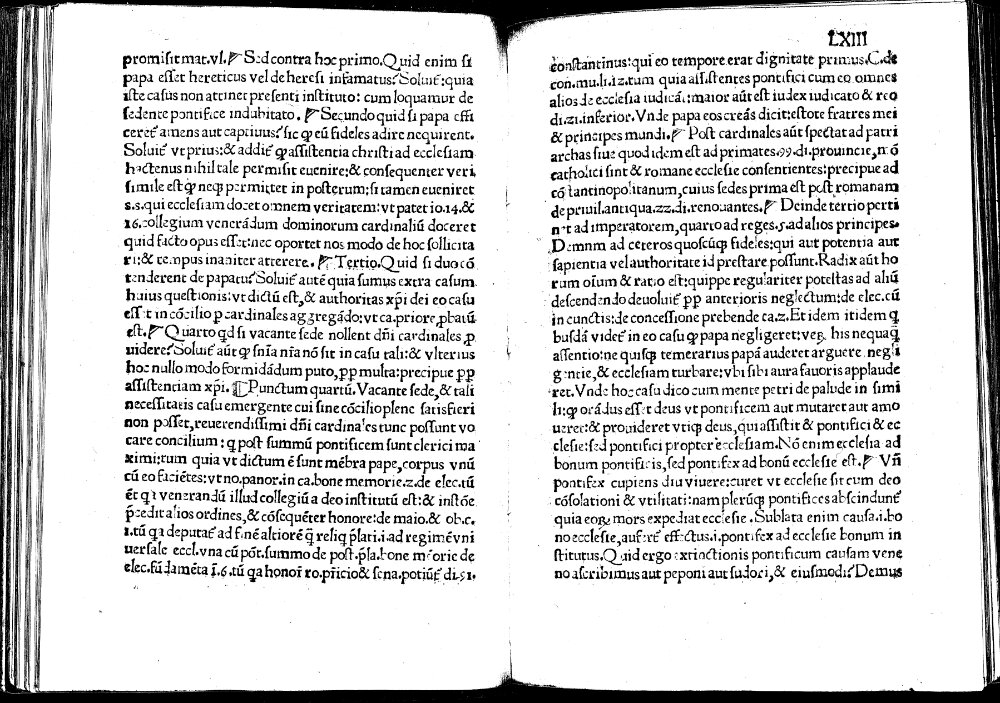 promisit mat. vl. Sed contra hoc primo. Quid enim si
papa esset hereticus vel de heresi infamatus? Soluit᷑: quia
iste casus non attinet presenti instituto: cum loquamur de
sedente pontifice indubitato. Secundo quid si papa effi
ceret᷑ amens aut captiuus? sic ꝙ eū fideles adire nequirent.
Soluit᷑ vt prius: & addit᷑ ꝙ assistentia christi ad ecclesiam
hactenus nihil tale permisit euenire: & consequenter veri
simile est ꝙ neqꝫ permittet in posterum: si tamen eueniret
s.s. qui ecclesiam docet omnem veritatem: vt patet io. 14. &
16. collegium venerādum dominorum cardinaliū doceret
quid facto opus esset: nec oportet nos modo de hoc sollicita
ri: & tempus inaniter atterere. Tertio. Quid si duo cō
tenderent de papatu? Soluit᷑ autē quia sumus extra casum
huius questionis: vt dictū est, & authoritas xp̄i dei eo casu
esset in cōcilio ꝑ cardinales aggregādo: vt ca. priore, ꝓbatū
est. Quarto qd si vacante sede nollent dn̄i cardinales ꝓ
uidere? Soluit᷑ aūt ꝙ sn̄ia nr̄a nō sit in casu tali: & vlterius
hoc nullo modo formidādum puto, ꝓp multa: precipue ꝓp
assistentiam xp̄i. Punctum quartū. Vacante sede, & tali
necessitatis casu emergente cui sine cōcilio plene satisfieri
non posset, reuerendissimi dn̄i cardinales tunc possunt vo
care concilium: ꝙ post summū pontificem sunt clerici ma
ximi: tum quia vt dictum ē sunt mēbra pape, corpus vnū
cū eo faciētes: vt no. panor. in ca. bone memorie. 2. de elec. tū
ēt qa venerandū illud collegiū a deo institutū est: & instōe
p̄cedit alios ordines, & cōsequēter honore: de maio. & ob. c.
1. tū qa deputat᷑ ad finē altiorē ꝗ reliq p̄lati. i. ad regimē vni
uersale eccl. vna cū pōt. summo de post. p̄la. bone mēoric de
elec. fūdamēta §. 6. tū qa honor᷑ ro. p̄ricio & sena. potiūt᷑ di. 51.
LXIII
constantinus: qui eo tempore erat dignitate primus. C. de
con. mu. li. 12. tum quia assistentes pontifici cum eo omnes
alios de ecclesia iudicāt: maior aūt est iudex iudicato & reo
di. 21. inferior. Vnde papa eos creās dicit: estote fratres mei
& principes mundi. Post cardinales aūt spectat ad patri
archas siue quod idem est ad primates. 99. di. prouincie, mō
catholici sint & romane ecclesie consentientes: precipue ad
cōstantinopolitanum, cuius sedes prima est post romanam
de priuil. antiqua. 22. di. renouantes. Deinde tertio perti
net ad imperatorem, quarto ad reges. 5. ad alios principes.
Demum ad ceteros quoscūqꝫ fideles: qui aut potentia aut
sapientia vel authoritate id prestare possunt. Radix aūt ho
rum oīum & ratio est: quippe regulariter potestas ad aliū
descendendo deuoluit᷑ ꝓp anterioris neglectum: de elec. cū
in cunctis: de concessione prebende ca. 2. Et idem itidem ꝗ
busdā videt᷑ in eo casu ꝙ papa negligeret: veꝝ his nequaꝗ
assentio: ne quisqꝫ temerarius papā auderet arguere negli
gentie, & ecclesiam turbare: vbi sibi aura fauoris applaude
ret. Vnde hoc casu dico cum mente petri de palude in simi
li: ꝙ orādus esset deus vt pontificem aut mutaret aut amo
ueret: & prouideret vtiqꝫ deus, qui assistit & pontifici & ec
clesie: sed pontifici propter ecclesiam. Nō enim ecclesia ad
bonum pontificis, sed pontifex ad bonū ecclesie est. Vn̄
pontifex cupiens diu viuere: curet vt ecclesie sit cum deo
cōsolationi & vtilitati: nam plerūqꝫ pontifices abscindunt᷑
quia eoꝝ mors expediat ecclesie. Sublata enim causa. i. bo
no ecclesie, aufert᷑ effectus. i. pontifex ad ecclesie bonum in
stitutus. Quid ergo extinctionis pontificum causam vene
no ascribimus aut peponi aut sudori, & eiusmodi? Demus